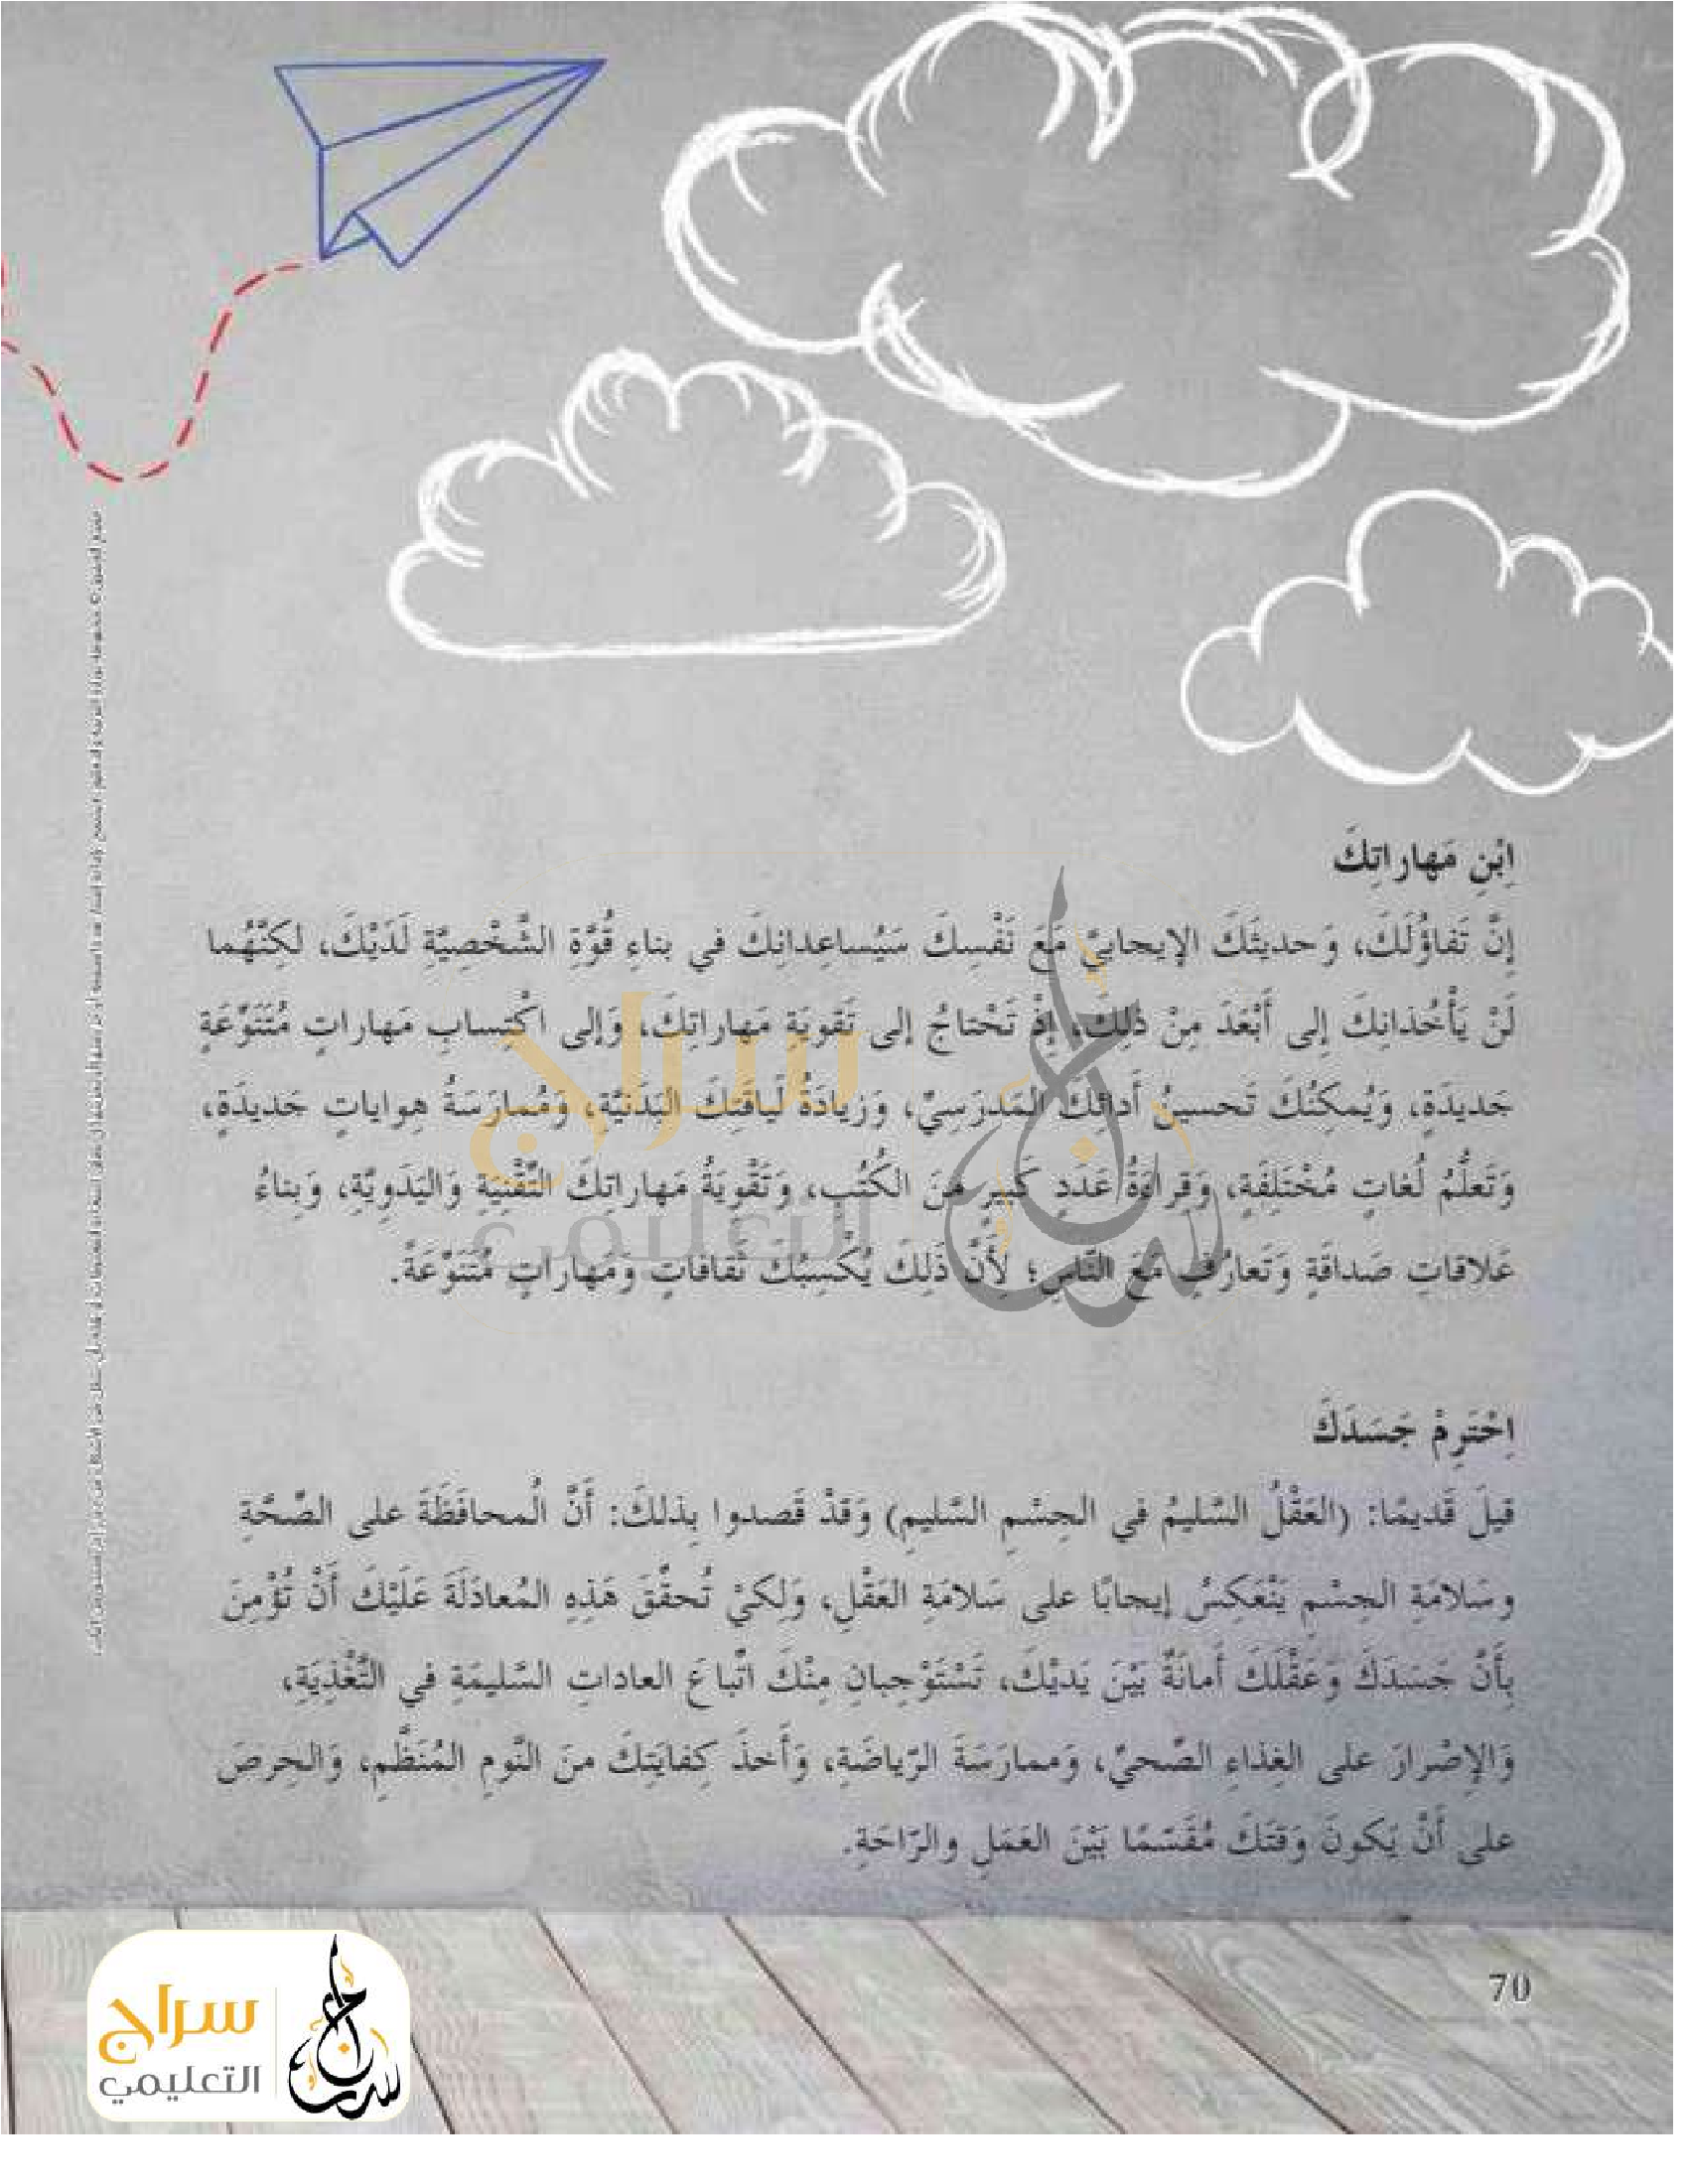 اِبْنِ مَهاراتِكَ
إِنَّ تَفاؤُلَكَ، وَحديثَكَ الإيجابيَّ مَعَ نَفْسِكَ سَيُساعِدانِكَ في بناءِ قُوَّةِ الشَّخْصِيَّةِ لَدَيْكَ، لكنَّهُما
لَنْ يَأْخُذانِكَ إِلى أَبْعَدَ مِنْ ذلِكَ، إِذْ تَحْتاجُ إلى تَقويَةِ مَهاراتِكَ، وَإلى اكْتِسابِ مَهاراتٍ مُتَنَوِّعَةٍ
جَديدَةٍ، وَيُمكِنُكَ تَحسينُ أَدائِكَ المَدرَسِيِّ، وَزيادَةُ لَياقَتِكَ البَدَنيَّةِ، وَمُمارَسَةُ هِواياتٍ جَديدَةٍ،
وَتَعلُّمُ لُغاتٍ مُخْتَلِفَةٍ، وَقِراءَةُ عَدَدٍ كَبيرٍ مِنَ الكُتُبِ، وَتَقْوِيَةُ مَهاراتِكَ التِّقْنِيَةِ وَاليَدَوِيَّةِ، وَبِناءُ
عَلاقاتِ صَداقَةٍ وَتَعارُفٍ مَعَ النَّاسِ؛ لِأَنَّ ذَلِكَ يُكْسِبُكَ ثَقافاتٍ وَمَهاراتٍ مُتَنَوِّعَةً.
اِحْتَرِمْ جَسَدَكَ
قيلَ قَديمًا: (العَقْلُ السَّليمُ في الجِسْمِ السَّليمِ) وَقَدْ قَصدوا بِذلكَ: أَنَّ الْمحافَظَةَ على الصِّحَّةِ
وسَلامَةِ الجِسْمِ يَنْعَكِسُ إيجابًا على سَلامَةِ العَقْلِ، وَلِكَيْ تُحقِّقَ هَذِهِ المُعادَلَةَ عَلَيْكَ أَنْ تُؤْمِنَ
بِأَنَّ جَسَدَكَ وَعَقْلَكَ أَمانَةٌ بَيْنَ يَديْكَ، تَسْتَوْجِبانِ مِنْكَ اتِّباعَ العاداتِ السَّليمَةِ في التَّغْذِيَةِ،
وَالإِصْرارَ على الغِذاءِ الصِّحيِّ، وَممارَسَةَ الرّياضَةِ، وَأَخذَ كِفايَتِكَ منَ النَّومِ المُنَظَّمِ، وَالحِرصَ
على أَنْ يَكونَ وَقتُكَ مُقَسَّمًا بَيْنَ العَمَلِ والرّاحَةِ.
70
سراج
التعليمي